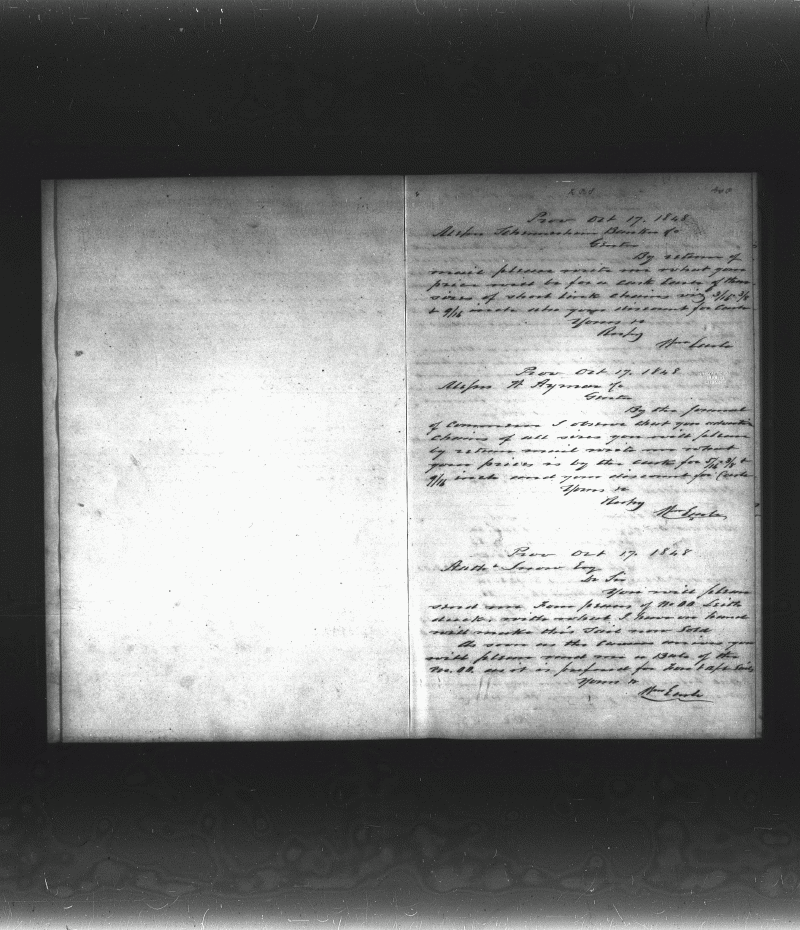 Prov Oct 17. 1848
Messrs Schermerhorn Banker &c
Gents
By return of
mail please write me what your
price will be for a cask each of these
sizes of short link chains viz 5/16 3/8
& 7/16 inch also your discount for Cash
Yours &c
Resfy
Wm Earle
Prov Oct 17. 1848
Messrs W Aymar &c
Gents
By the Journal
of Commerce I observe that you advertise
Chains of all sizes you will please
by return mail write me what
your prices is by the cask for 5/16 3/8 &
7/16 inch and your discount for Cash
Yours &c
Resfy
Wm Earle
Prov Oct 17. 1848
Snow Esq
Dr Sir
You will please
send me Four pieces of No 00
ducks with what I have on hand
will make this Sail now Sold
As soon as the arrives you
will please send me a Bale of the
No. 00. as it is prepared for
Yours &c
Wm Earle